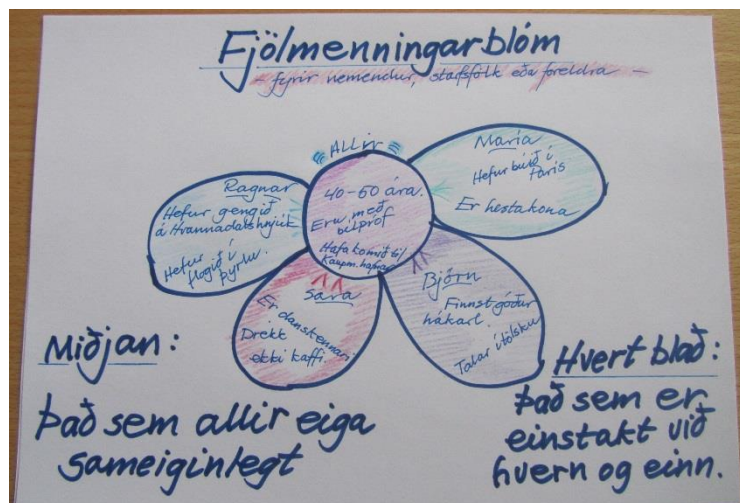 Fjölmenningarblóm
- fyrir nemendur, starfsfólk eða foreldra -
Allir
40-60 ára.
Eru með
bílpróf
Hafa komið til
Kaupm.hafnar
María
Hefur búið í
París
Er hestakona
Ragnar
Hefur gengið
á Hvannadalshnjúk
Hefur
flogið í
þyrlu.
Sara
Er danskennari
Drekk
ekki kaffi.
Björn
Finnst góður
hákarl.
Talar ítölsku
Miðjan:
Það sem allir eiga
sameiginlegt
Hvert blað:
Það sem er
einstakt við
hvern og einn.